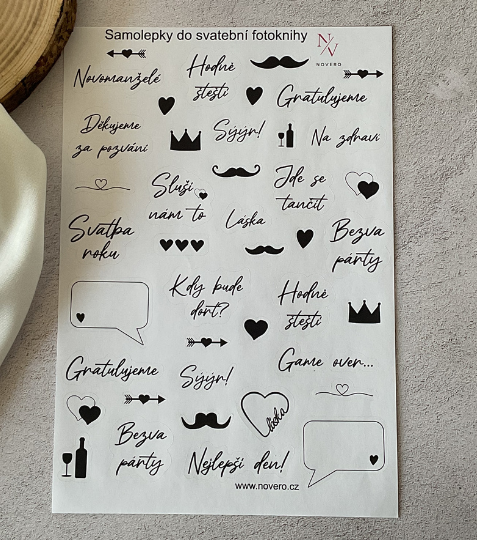 Samolepky do svatební fotoknihy
N/V
NOVERO
Novomanželé
Hodně
štěstí
Gratulujeme
Děkujeme
za pozvání
Sýýr!
Na zdraví
Sluší
nám to
Jde se
tančit
Svatba
roku
Láska
Bezva
párty
Kdy bude
dort?
Hodně
štěstí
Gratulujeme
Sýýr!
Game over...
Bezva
párty
láska
Nejlepší den!
www.novero.cz